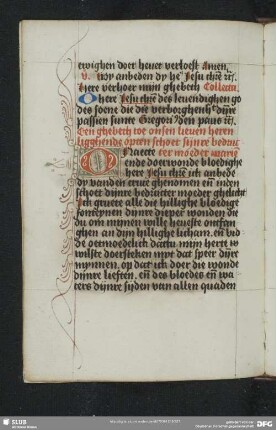 ewighen doer heuer verloest Amen.
V. Wy anbeden dy he Jesu
Here verhoer mijn ghebeth Collecta
O here Jesu des leuendighen go
des soene die die verborgheyt dijnre
passien sunte Gregori den paus
Een ghebeth tot onsen lieuen heren
ligghende opten schoet sijnre bedruc
ter moeder marie
ende doerwonde bloedighe
here Jesu ich anbede
dy vanden cruce ghenomen eñ inden
schoet dijnre bedructer moeder ghelacht
Ich gruete alle die hillighe bloedige
fonteynen dijnre dieper wonden die
du om mijnen wille heuest ontfan
ghen an dijn hillighe licham. eñ bid
de oetmoedelich dattu mijn herte
wilste doersteken myt dat speer dijnre
mynnen. op dat ich doer die wonde
dijnre lieften. eñ des bloedes eñ wa
ters dijnre syden van allen quaden
SLUB
DFG